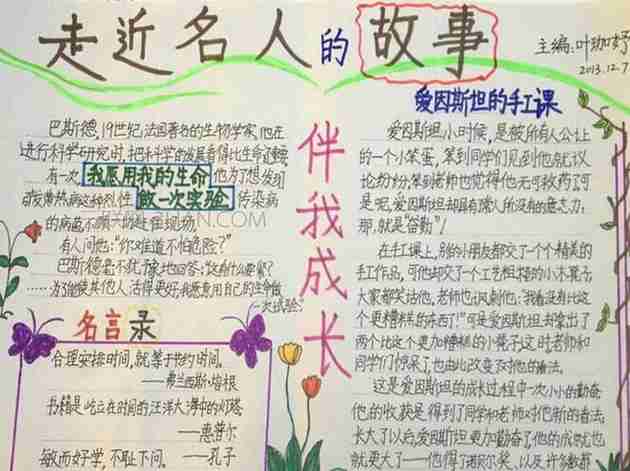 走近名人的故事
主编:叶珈妤
2013.12.7
巴斯德,19世纪法国著名的生物学家,他在
进行科学研究时,把科学的发展看得比生命还重要
有一次 我愿用我的生命 他为了想发现
做一次实验 传染病
的病菌不顾一切赶往现场。
有人问他:“你难道不怕危险?”
巴斯德毫不犹豫地回答:这有什么要紧?
……为了能使其他人活得更好,我愿意用自己的生命做
一次试验
名言录
合理安排时间,就等于节约时间。
——弗兰西斯·培根
书籍是屹立在时间的汪洋大海中的灯塔
——惠普尔
敏而好学,不耻下问。
——孔子
伴我成长
爱因斯坦的手工课
爱因斯坦小时候,是被所有人公认上
的一个小笨蛋,笨到同学们见到他就议
论纷纷,笨到老师也觉得他无可救药了可
是呢,爱因斯坦却具有常人所没有的意志力:
那,就是“勤奋”!
在手工课上,别的小朋友都交了一个个精美的
手工作品,可他却交了一个工艺粗糙的小木凳子,
大家都笑话他,老师也讽刺他:“我看没有比这
个更糟糕的东西了!”可是爱因斯坦,却拿出了
两个比这个更加糟糕的小凳子这时老师和
同学们惊呆了,也由此改变了对他的看法。
这是爱因斯坦的成长过程中一次小小的勤奋
他的收获是得到了同学和老师对他新的看法,
长大了以后,爱因斯坦更加勤奋了他的成就也
就更大了——他得了诺贝尔奖